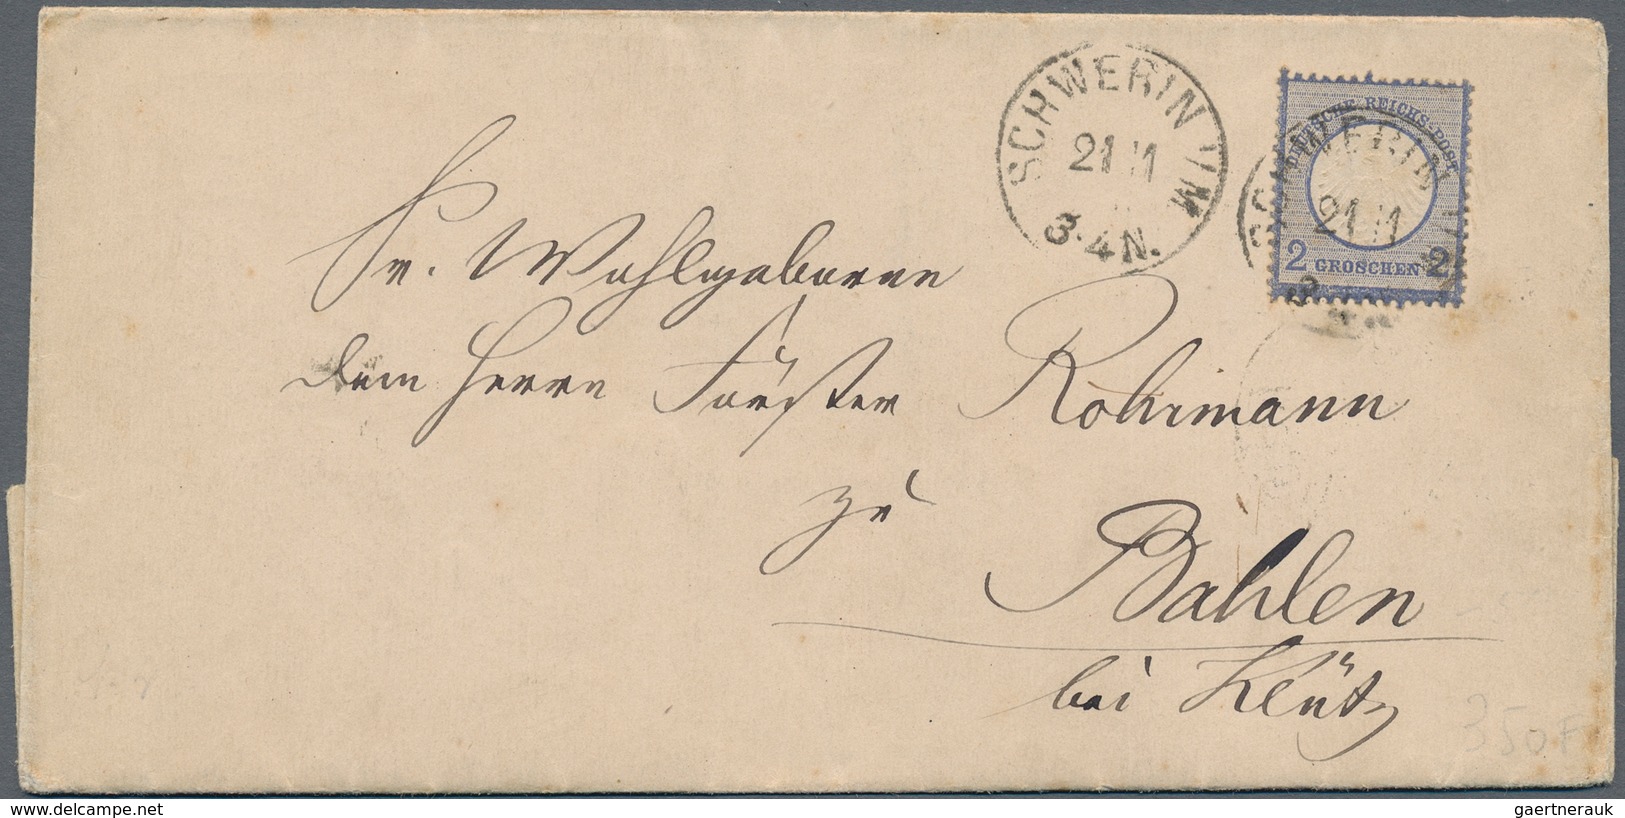 SCHWERIN I/M
21 11
3-4 N.
DEUTSCHE REICHS-POST
SCHWERIN I/M
21 11
3
2 GROSCHEN 2
Sr. Wohlgeboren
dem Herrn Förster Rohrmann
zu
Bahlen
bei Klütz
350 F
delcampe.net
gaertnerauk